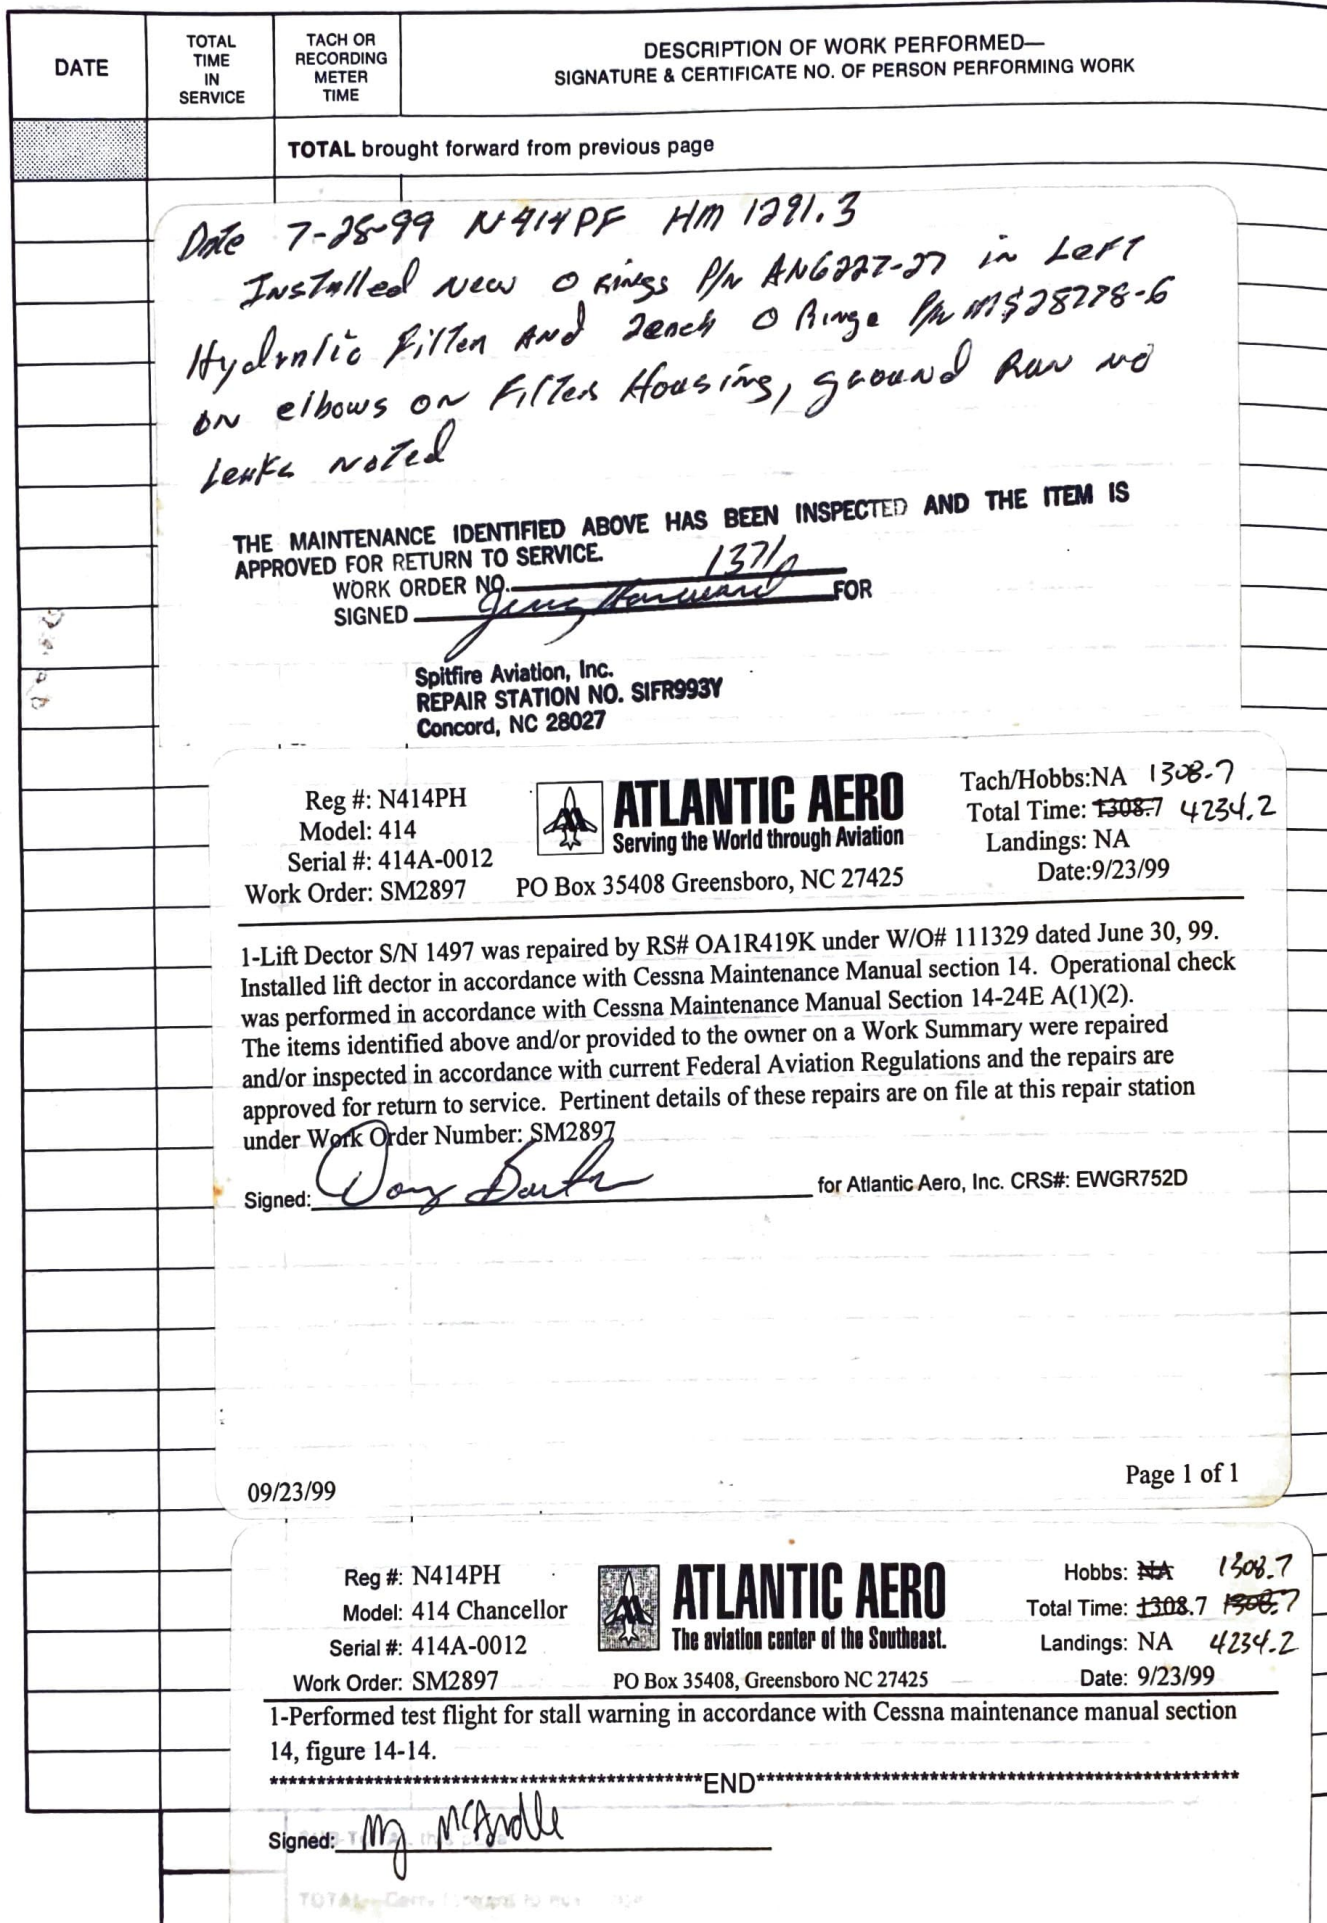 DATE
TOTAL TIME IN SERVICE
TACH OR RECORDING METER TIME
DESCRIPTION OF WORK PERFORMED—
SIGNATURE & CERTIFICATE NO. OF PERSON PERFORMING WORK
TOTAL brought forward from previous page
Date 7-28-99 N414PF HM 1291.3
Installed New O Rings P/N AN6227-27 in Left
Hydralic Filter And 2each O Rings P/N MS28778-6
on elbows on Filter Housing, ground Run no
Leaks noted
THE MAINTENANCE IDENTIFIED ABOVE HAS BEEN INSPECTED AND THE ITEM IS
APPROVED FOR RETURN TO SERVICE.
WORK ORDER NO. 1371
SIGNED FOR
Spitfire Aviation, Inc.
REPAIR STATION NO. SIFR993Y
Concord, NC 28027
Reg #: N414PH
Model: 414
Serial #: 414A-0012
Work Order: SM2897
ATLANTIC AERO
Serving the World through Aviation
PO Box 35408 Greensboro, NC 27425
Tach/Hobbs:NA 1308.7
Total Time: 1308.7 4234.2
Landings: NA
Date:9/23/99
1-Lift Dector S/N 1497 was repaired by RS# OA1R419K under W/O# 111329 dated June 30, 99.
Installed lift dector in accordance with Cessna Maintenance Manual section 14. Operational check
was performed in accordance with Cessna Maintenance Manual Section 14-24E A(1)(2).
The items identified above and/or provided to the owner on a Work Summary were repaired
and/or inspected in accordance with current Federal Aviation Regulations and the repairs are
approved for return to service. Pertinent details of these repairs are on file at this repair station
under Work Order Number: SM2897
Signed: for Atlantic Aero, Inc. CRS#: EWGR752D
09/23/99
Page 1 of 1
Reg #: N414PH
Model: 414 Chancellor
Serial #: 414A-0012
Work Order: SM2897
ATLANTIC AERO
The aviation center of the Southeast.
PO Box 35408, Greensboro NC 27425
Hobbs: NA 1308.7
Total Time: 1308.7 1308.7
Landings: NA 4234.2
Date: 9/23/99
1-Performed test flight for stall warning in accordance with Cessna maintenance manual section
14, figure 14-14.
**********************************************END**************************************************
Signed: McArdle